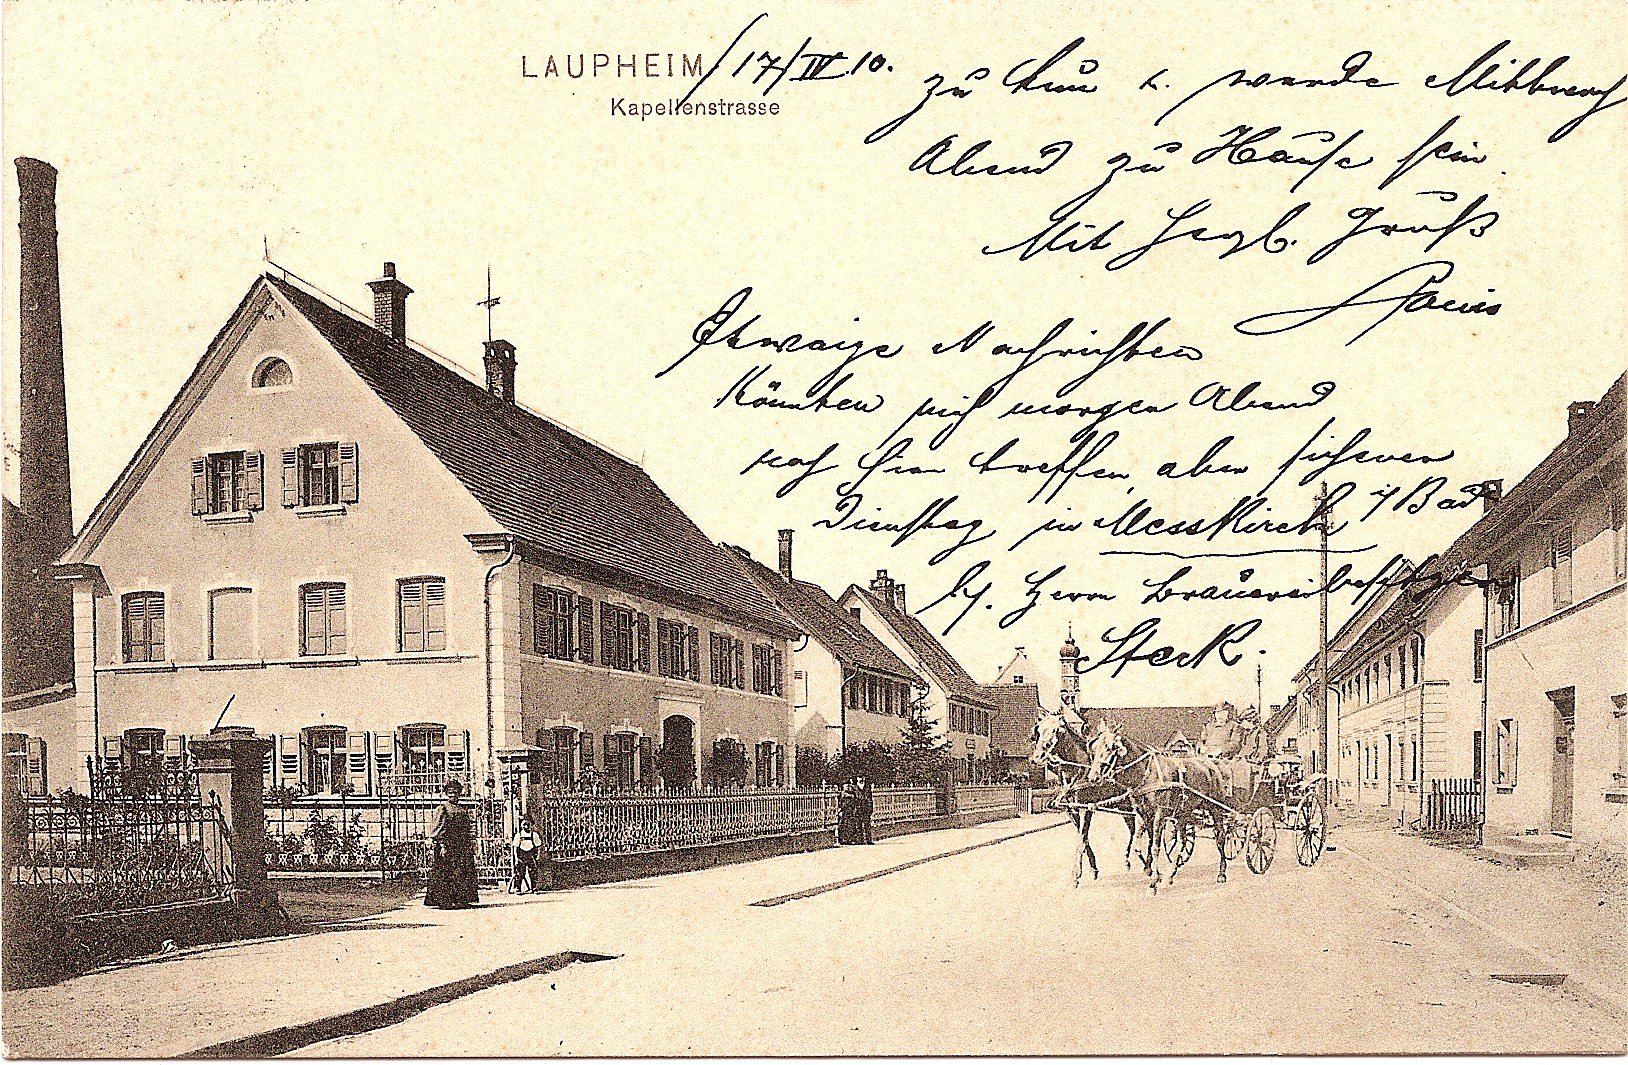 LAUPHEIM /17/IV.10.
Kapellenstrasse
zu tun u. werde Mittwoch
Abend zu Hause sein.
Mit Herzl. Gruß
Louis
Etwaige Nachrichten
könnten mich morgen Abend
noch hier treffen, aber sicherer
Dienstag in Messkirch i/Bad
bei Herrn Brauereibesitzer
Steck.